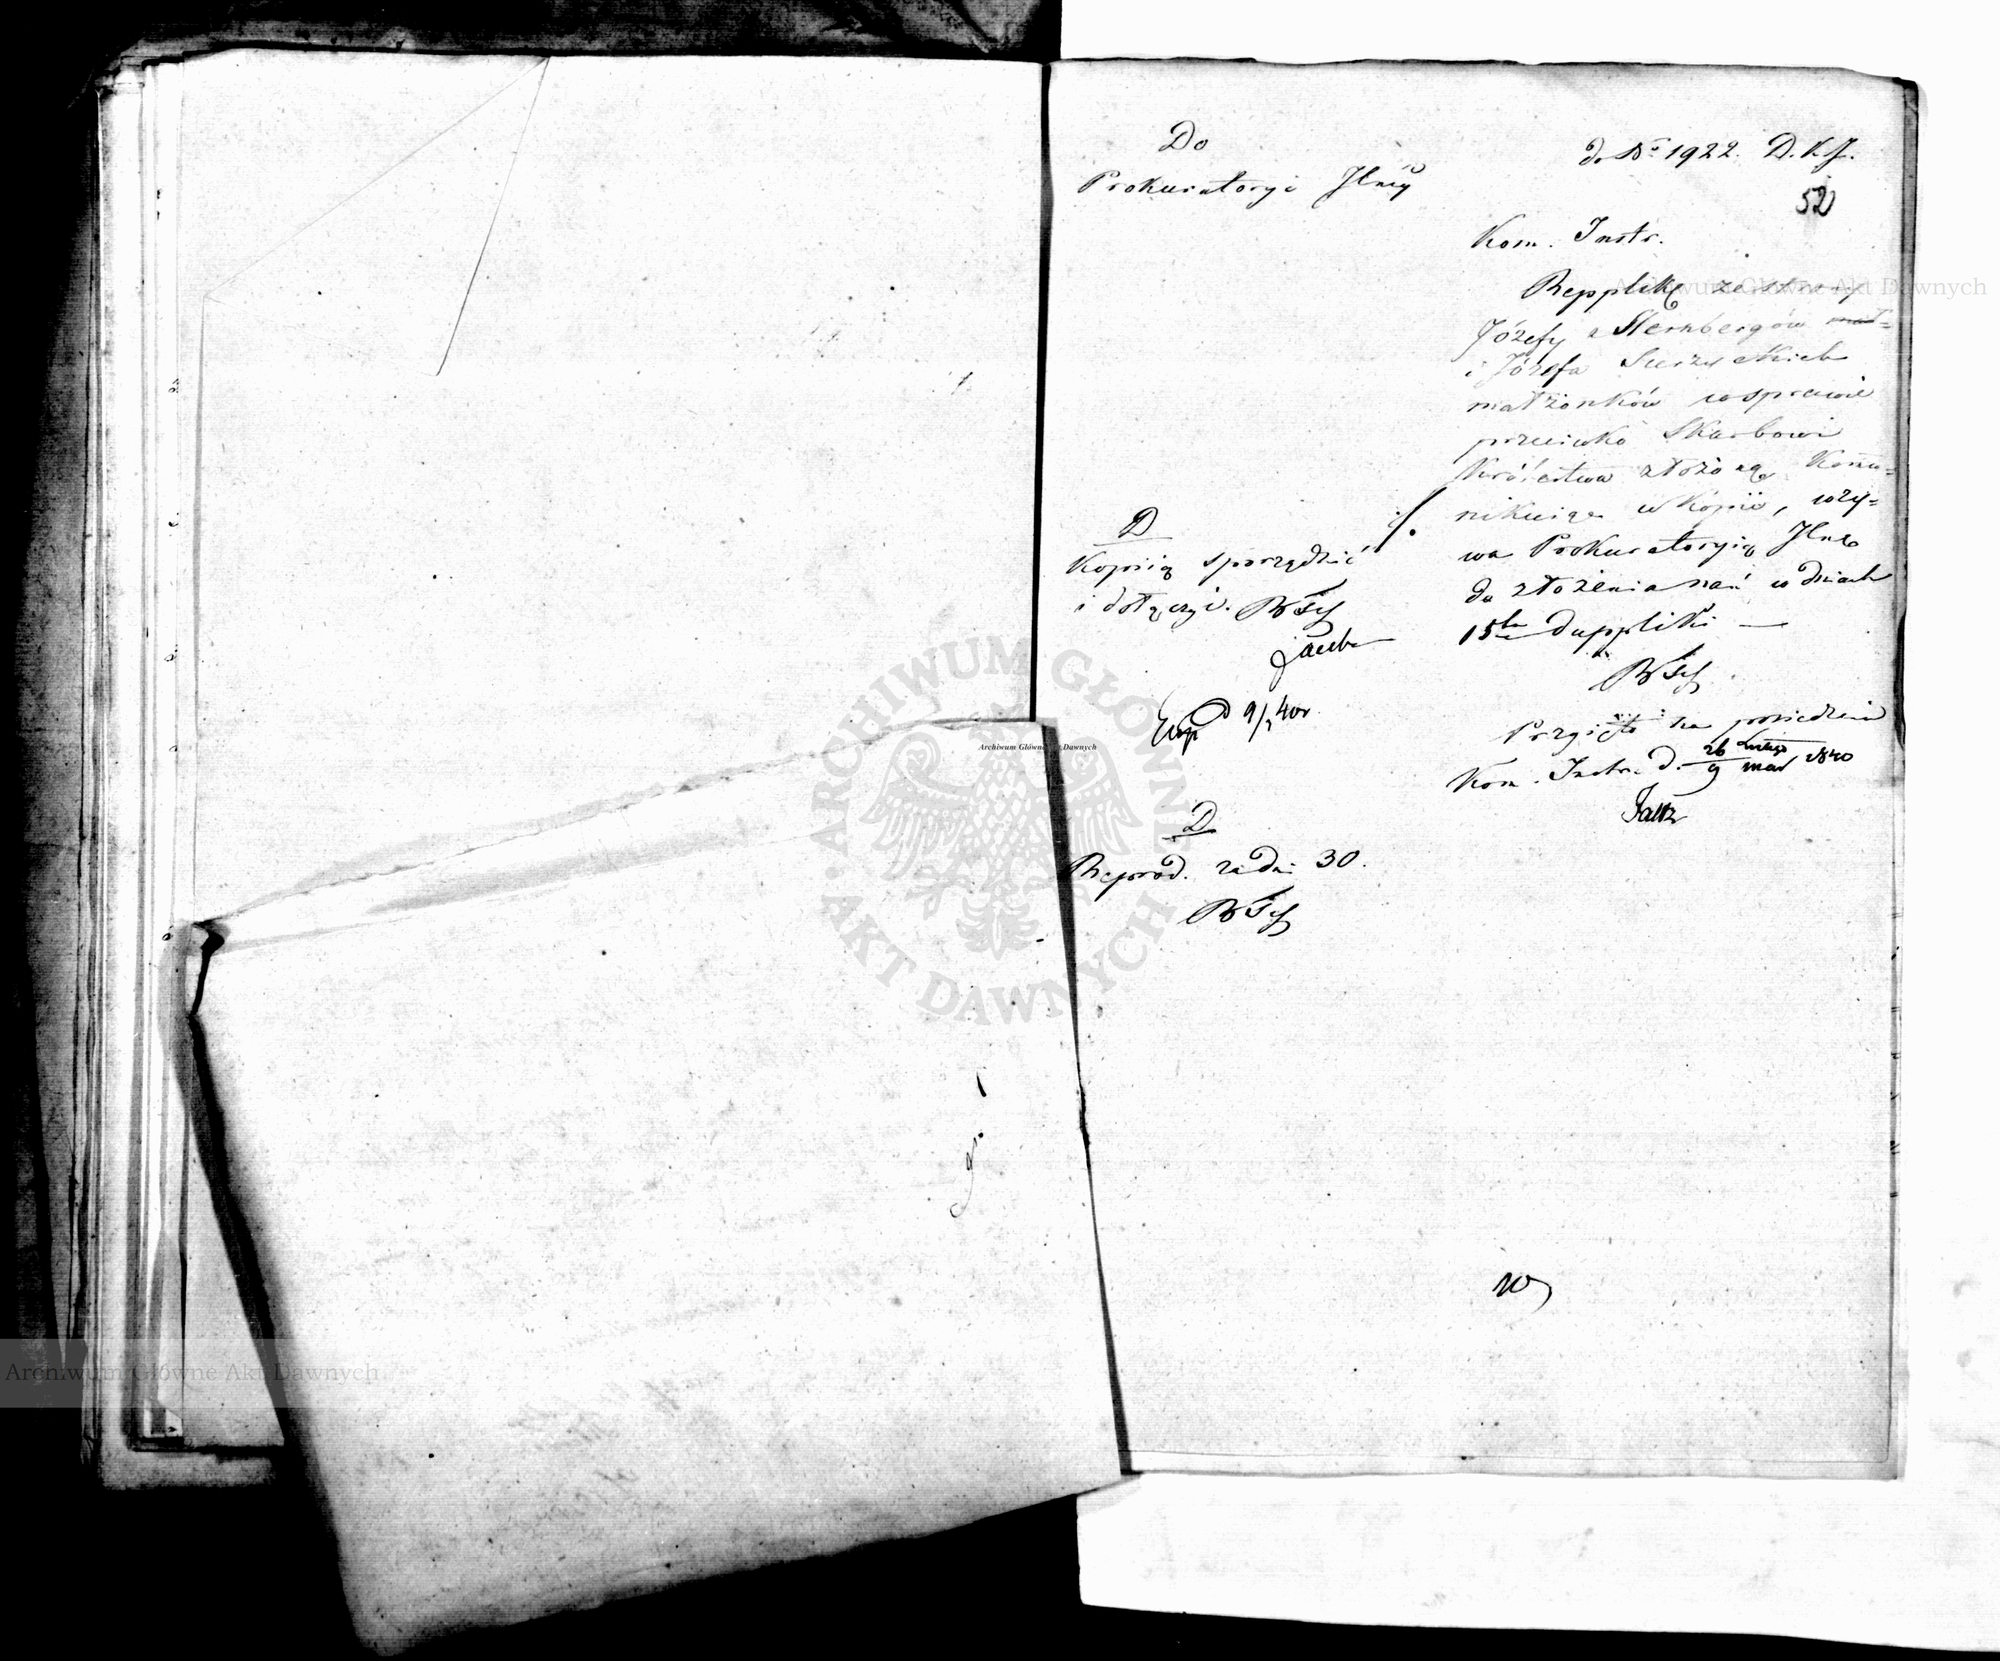 Do
Prokuratoryi Jlney
do No 1922. D.K.J.
52
Kom. Instr.
Repplikę ze strony
Józefy z Sternbergów
i Józefa
małżonków w sprawie
przeciwko Skarbowi
Królestwa złożoną Kommu=
nikuiąc w kopii, wzy=
wa Prokuratoryią Jlną
do złożenia nań w dniach
15tu duppliki —
Przyięto na posiedzeniu
Kom. Instr. d. 26 lutego / 9 mar 1840
D
Kopiią sporządzić
i dołączyć.
Exp D 9/3 40r.
D
Reprod. za dni 30.
ARCHIWUM GŁÓWNE AKT DAWNYCH
Archiwum Główne Akt Dawnych
Archiwum Główne Akt Dawnych
Archiwum Główne Akt Dawnych